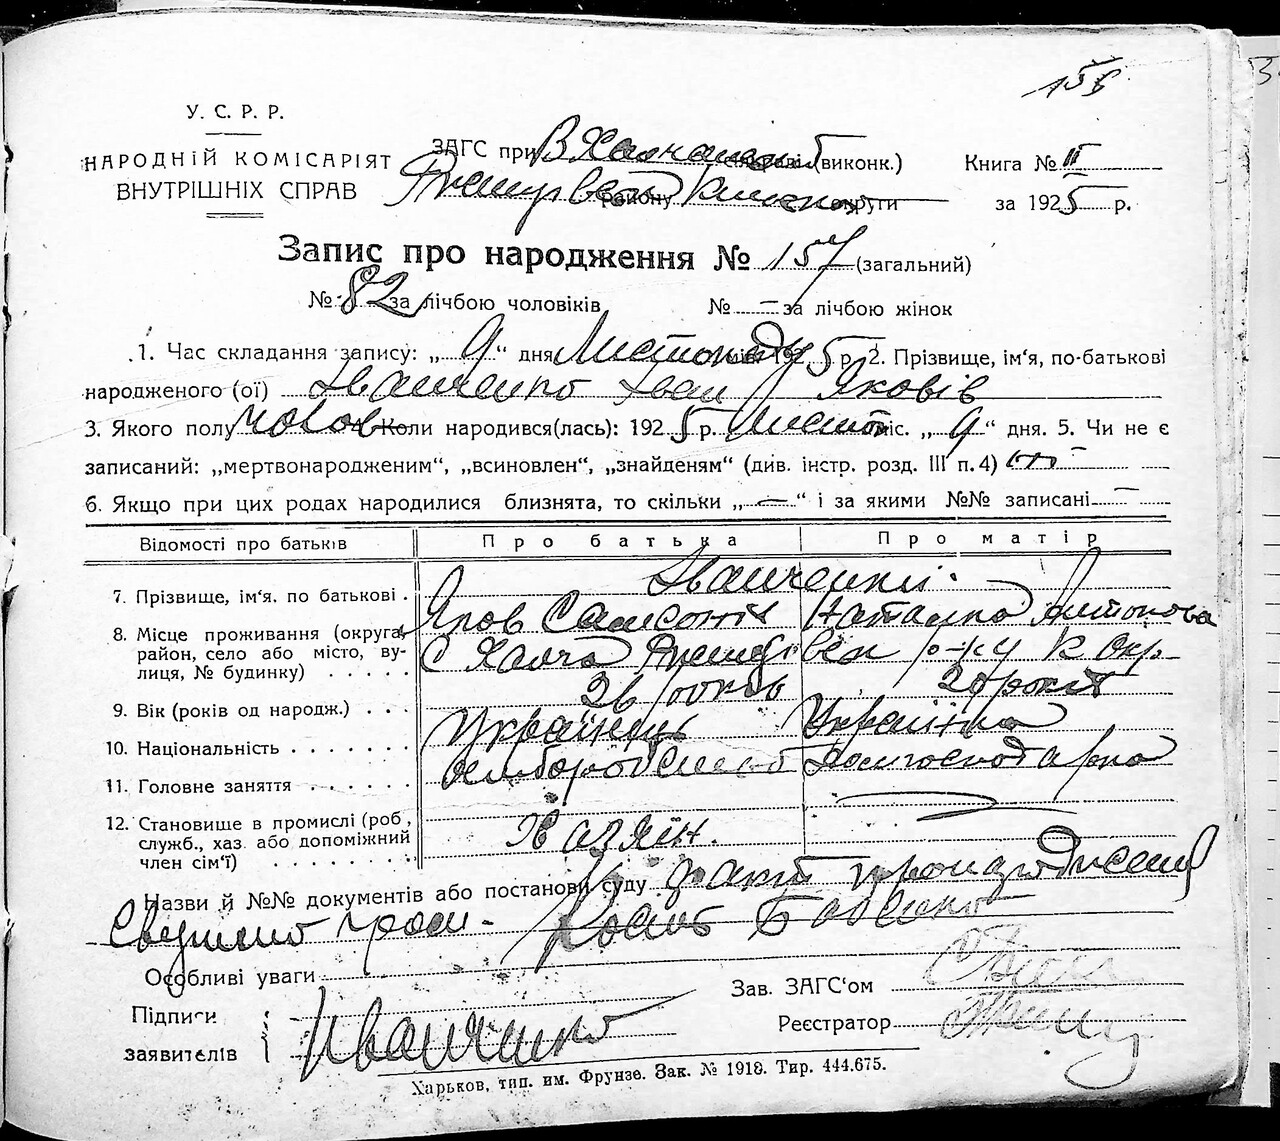 156
У. С. Р. Р.
НАРОДНІЙ КОМІСАРІЯТ
ВНУТРІШНІХ СПРАВ
ЗАГС при (виконк.)
району округи
Книга № III
за 1925 р.
Запис про народження № 157 (загальний)
№ 82 за лічбою чоловіків № — за лічбою жінок
1. Час складання запису: „ 9 “ дня Листопаду 1925 р. 2. Прізвище, ім‘я, по-батькові
народженого (ої) Іванченко Іван Яковів
3. Якого полу чолов 4. Коли народився(лась): 1925 р. листоп міс. „ 9 “ дня. 5. Чи не є
записаний: „мертвонародженим“, „всиновлен“, „знайденям“ (див. інстр. розд. III п. 4)
6. Якщо при цих родах народилися близнята, то скільки „ — “ і за якими №№ записані —
Відомості про батьків Про батька Про матір
Іванченки.
7. Прізвище, ім‘я, по батькові Яков Самсонів Наталка Антонова
8. Місце проживання (округа, район, село або місто, вулиця, № будинку) с Халча р-ну К окр
9. Вік (років од народж.) 26 років 20 років
10. Національність Українець Українка
11. Головне заняття хліборобство домгосподарка
12. Становище в промислі (роб., служб., хаз. або допоміжний член сім‘ї) Хазяїн.
Назви й №№ документів або постанови суду
Особливі уваги
Підписи
заявителів
Іванченко
Зав. ЗАГС‘ом
Реєстратор
Харьков, тип. им. Фрунзе. Зак. № 1918. Тир. 444.675.